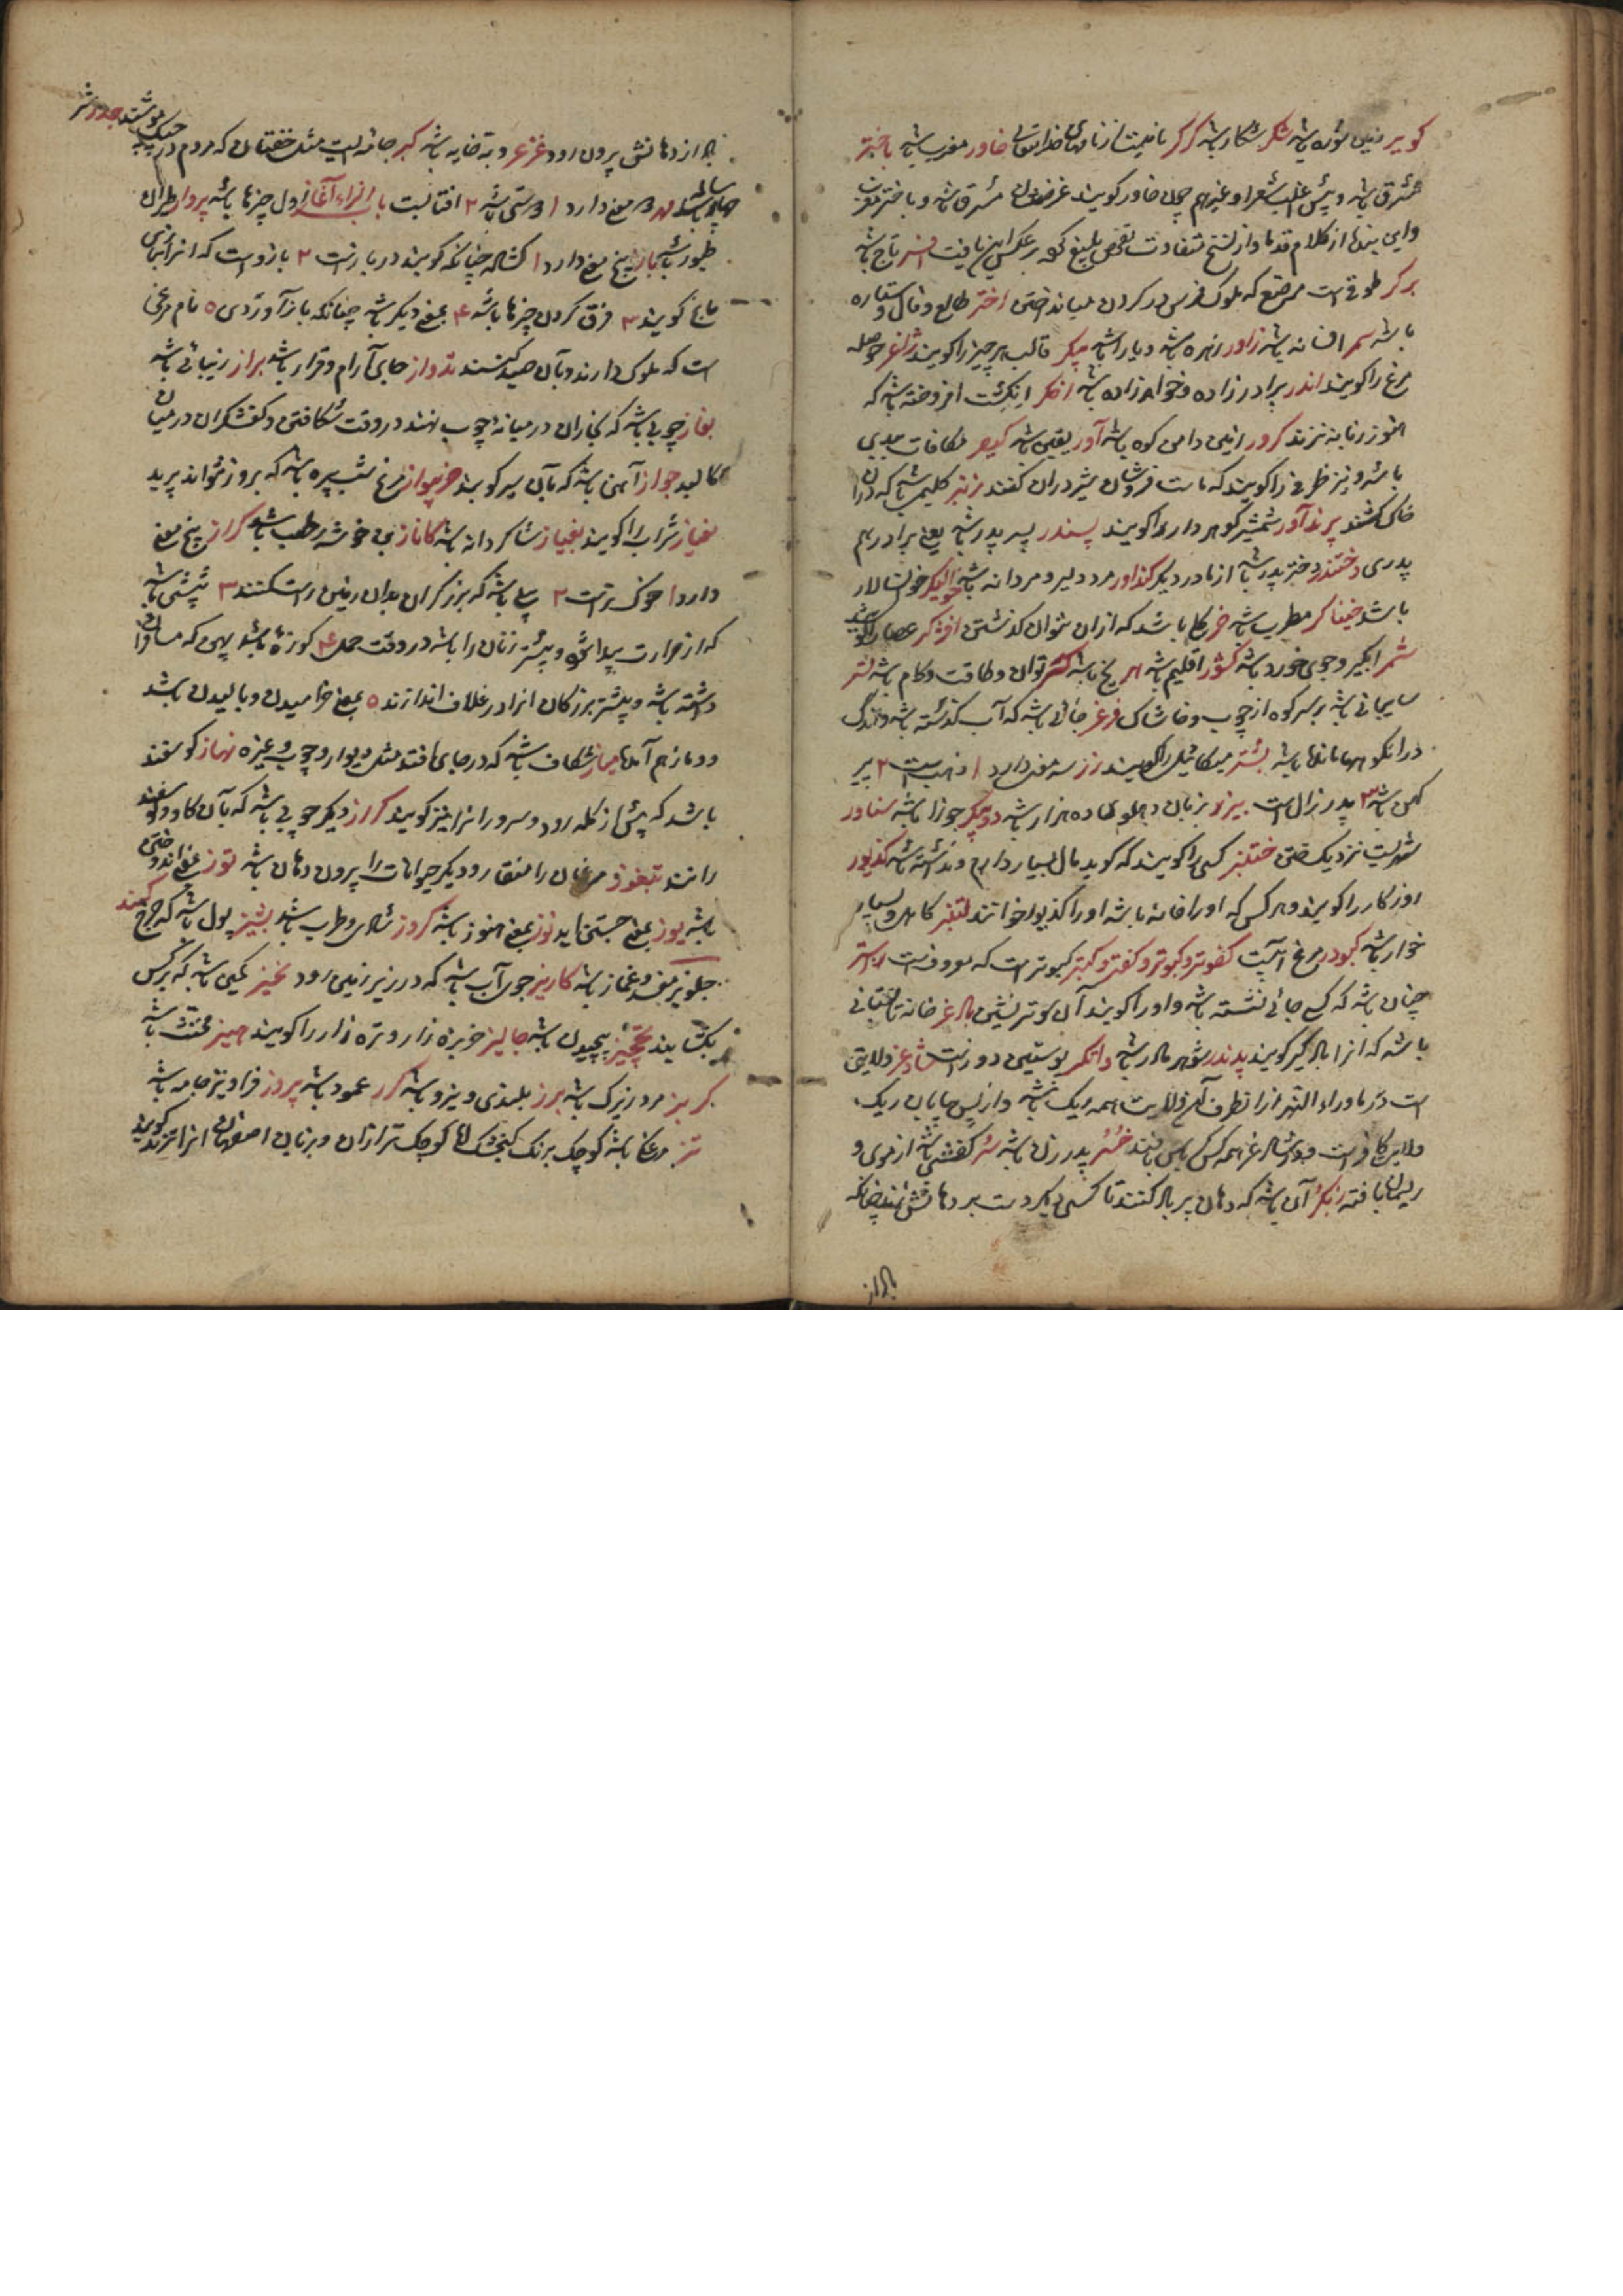 کویر زمین شوره باشد شکر شکار باشد گرگر نامیست از نامهای خدایتعالی خاور مغرب باشد باختر
مشرق باشد و پیش اغلب شعرا و غیرهم چون خاور گویند غرض مشرق باشد و باختر مغرب
و این بنده از کلام قدما و از نسخ متفاوت تفحص بلیغ کرد بر عکس این یافت افسر تاج باشد
برگر طوقی است مرصع که ملوک فرس در گردن میانداختن اختر طالع و فال و ستاره
باشد سمر افسانه باشد زاور زهره باشد و یارا باشد پیکر قالب هر چیز را گویند ژاغر حوصله
مرغ را گویند اندر برادرزاده و خواهرزاده باشد اخگر انگشت افروخته باشد که
هنوز زبانه نزند کرور زمین دامن کوه باشد آور یقین باشد کیفر مکافات بدی
باشد و نیز ظرفی را گویند که ماست فروشان شیر در آن کنند زنبر گلیمی باشد که در آن
خاک کشند پرندآور شمشیر گوهردار را گویند پسندر پسر پدر باشد یعنی برادر هم
پدری دختندر دختر پدر باشد از مادر دیگر کنداور مرد دلیر و مردانه باشد خوالیگر خوانسالار
باشد خنیاگر مطرب باشد خر گل باشد که از آن نتوان گذشتن افشرگر عصار را گویند
شمر آبگیر و جوی خورد باشد کشور اقلیم باشد هر یخ باشد گنتر توان و طاقت و کام باشد لتر
سایبانی باشد بر سر کوه از چوب و خاشاک فرغر جائی باشد که آب گذشته باشد و اندک
در آنگو مانده باشد بشتر میکائیل را گویند زر سه معنی دارد ۱ ذهب است ۲ پیر
کهن باشد ۳ پدر زال است بیور بزبان پهلوی ده هزار باشد دوپیکر جوزا باشد سناور
شهریست نزدیک ختن ختنبر کسی را گویند که گوید مال بسیار دارم و نداشته باشد کدیور
روزکار را گویند و هر کس که او را خانه باشد او را کدیور خوانند لتنبر کاهل و بسیار
خوار باشد کبودر مرغ آبیست کفوتر و کبوتر و کفتر و کبتر کبوتر است که معروفست استر
چنان باشد که کسی جائی نشسته باشد و او را گویند آن سوتر نشین بالغر خانه تابستانی
باشد که آنرا بالاگیر گویند پدندر شوهر مادر باشد واتگر پوستین دوزست شاوغر ولایتی
است در ماوراءالنهر از انطرف آن ولایت همه ریک باشد و از پس بیابان ریک
ولایت کافرست و در شاوغر همه کس کرباس بافند خسر پدر زن باشد شر کفشی باشد از موی و
ریسمان بافته زنگر آن باشد که دهان پر باد کنند تا کسی دیگر دست بر دهانش زند چنانکه
باد از
باد از دهانش بیرون رود غرغر دبه خایه باشد کبر جامه ایست مثل خفتان که مردم در جنگ پوشند جدر شتر
چهار ساله باشد هور دو معنی دارد ۱ روشنی باشد ۲ آفتابست باب الزاء آغاز اول چیزها باشد پرواز طیران
طیور باشد باز پنج معنی دارد ۱ گشاده چنانکه گویند در بازست ۲ بازو است که آنرا بتازی
باع گویند ۳ فرق کردن چیزها باشد ۴ بمعنی دیگر باشد چنانکه باز آورَدی ۵ نام مرغی
است که ملوک دارند و بآن صید کنند پدواز جای آرام و قرار باشد براز زیبائی باشد
بغاز چوبی باشد که نجاران در میانه چوب نهند در وقت شکافتن و کفشگران در میان
کالبد جواز آهنی باشد که بآن سیر کوبند خربیواز مرغ شب پره باشد که بروز نتواند پرید
بغیاز شراب را گویند بغیاز شاگردانه باشد کاناز بن خوشه رطب باشد گراز پنج معنی
دارد ۱ خوک نراست ۲ بیلی باشد که برزگران بدان زمین راست کنند ۳ تبشی باشد
که از حرارت پیدا شود و بیشتر زنان را باشد در وقت حمل ۴ کوزه باشد پهن که مسافران
داشته باشند و بیشتر بزرگان آنرا در غلاف اندازند ۵ بمعنی خرامیدن و بالیدن باشد
و دماز هم آنها میاز شکاف باشد که در جای افتد مثل دیوار و چوب و غیره نهاز گوسفند
باشد که پیش از گله رود و سرور آنرا نیز گویند گراز دیگر چوبی باشد که بآن گاو و گوسفند
رانند بتفوز مرغان را منقار و دیگر حیوانات را بیرون دهان باشد توز بمعنی اندوختن
باشد یوز بمعنی جستن آید نوز بمعنی هنوز باشد کروز شادی و طرب باشد پشیز پول باشد که خرج کنند
جلویز مفسد و غماز باشد کاریز جوی آب باشد که در زیر زمین رود نخیز کمین باشد که بر کس
بگشایند پیچیز پیچیدن باشد جالیز خربزه زار و تره زار را گویند هیز مخنث باشد
گربز مردم زیرک باشد برز بلندی و نیرو باشد گرز عمود باشد پروز فراویز جامه باشد
تز مرغی باشد کوچک برنک گنجشک اما کوچک تر از آن و بزبان اصفهان آنرا تزندک گویند